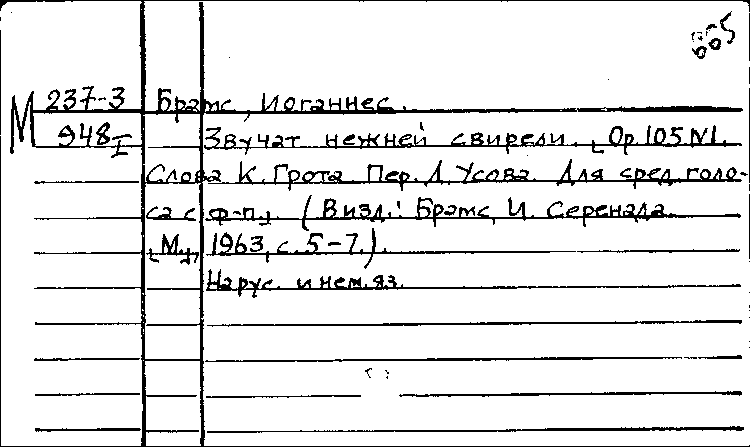 665
М 237-3 Брамс, Иоганнес.
948 I Звучат нежней свирели. [Op. 105 N1.
Слова К. Грота. Пер. Л. Усова. Для сред. голо-
са с ф-п.] (В изд.: Брамс, И. Серенада.
[М.], 1963, с. 5-7.).
На рус. и нем. яз.